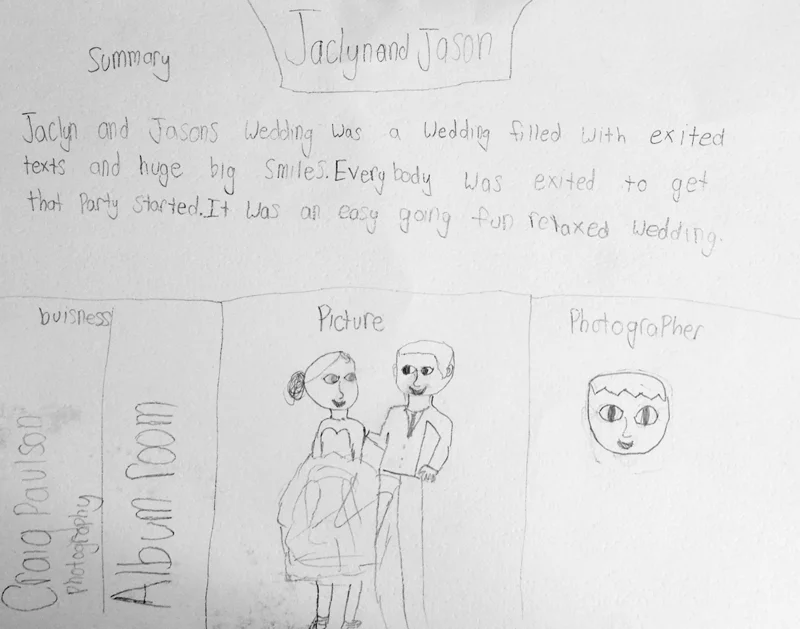 Summary
Jaclyn and Jason
Jaclyn and Jasons Wedding was a wedding filled with exited
texts and huge big smiles. Every body was exited to get
that Party started. It was an easy going fun relaxed wedding.
buisness
Picture
Photographer
Craig Paulson
photography
Album room